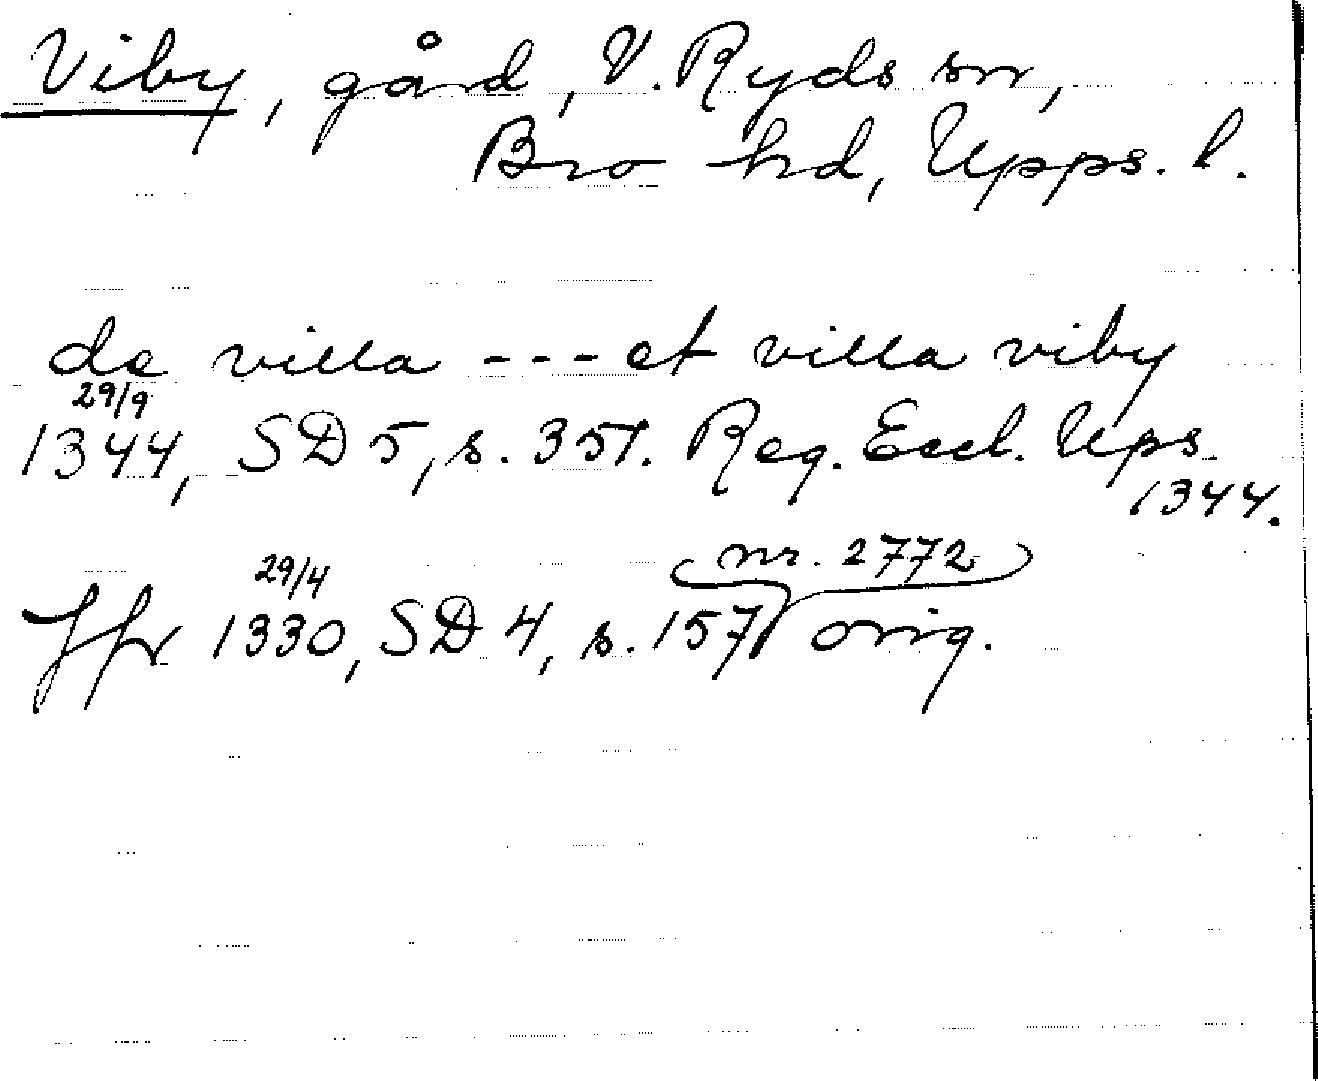 Viby, gård, V. Ryds sn,
Bro hd, Upps. l.
de villa --- et villa viby
29/9
1344, SD 5, s. 351. Reg. Eccl. Ups.
1344.
nr. 2772
29/4
Jfr 1330, SD 4, s. 157 orig.